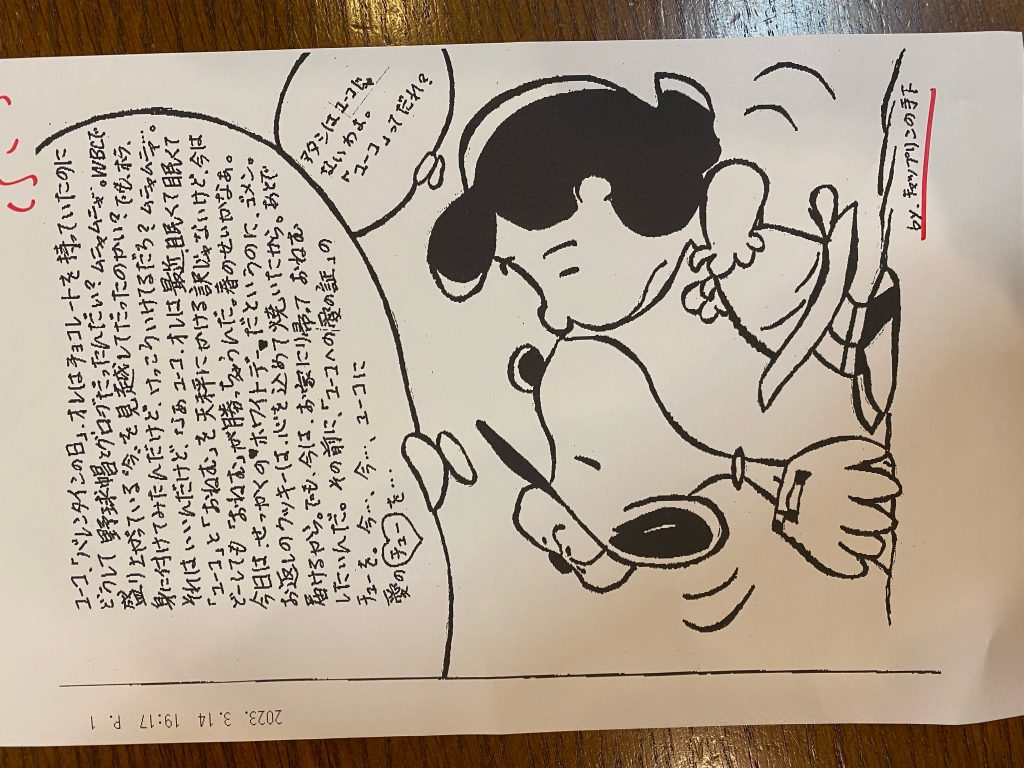 2023. 3.14 19:17 P. 1
ユーコ、「バレンタインの日」、オレはチョコレートを待っていたのに
どうして野球帽とグローブだったんだい?ムニャムニャ。WBCで
盛り上がっている今を見越してたったのかい?でも、ホラ、
身に付けてみたんだけど、けっこういけてるだろ?ムニャムニャ…。
それはいいんだけど、なぁユーコ、オレは最近、眠くて眠くて
「ユーコ」と「おねむ」を天秤にかける訳じゃないけど、今は
どーしても「おねむ」が勝っちゃうんだ。春のせいかなぁ。
今日は、せっかくの「ホワイトデー」だというのに、ゴメン。
お返しのクッキーは、心を込めて焼いたから。あとで
届けるから。でも、今は、お家に帰っておねむ
したいんだ。その前に、「ユーコへの愛の証」の
チューを。今…、今…、ユーコに
愛のチューを…
アタシはユーコじゃ
ないわよ。
"ユーコ"ってだれ?
by.チャップリンの手下